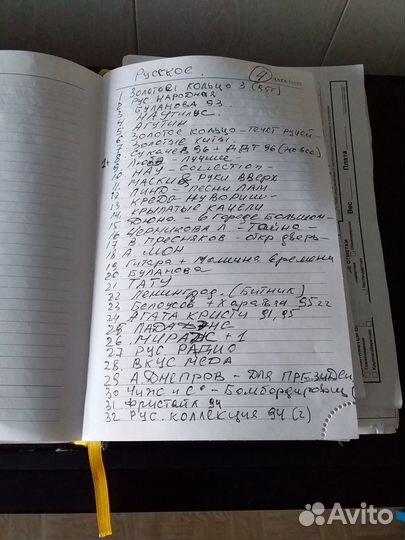 Русское.
4
1. Золотое кольцо 3 (
2 Рус народная
3 Буланова 93
4 Наутилус
5 Агутин
6 Золотое кольцо - течет ручей
7 Золотые хиты
8 Сукачев 96 + ДДТ 96 (
9 - лучшее
10 Нау - Collection -
11. Маски Руки вверх
12 - песни лам
13 Кредо - Жувориш -
14 - крылатые качели
15 Дюна - в городе большом
16 Черникова Л. - Тайна -
17 В Пресняков - откр дверь
18 А. Мон
19 Гитара + Машина времени
20 Буланова
21 Тату
22 Ленинград. (Битник)
23 Белоусов + Харатьян 95
24 Агата Кристи 91, 95
25 Лада Дэнс
26. Мираж + 1
27 Рус Радио
28. Вкус меда
29 А. Днепров - для
30 Чиж и С° - Бомбардировщ
31 Фристайл 94
32 Рус. коллекция 94 (2)
Вес
Плата
Avito